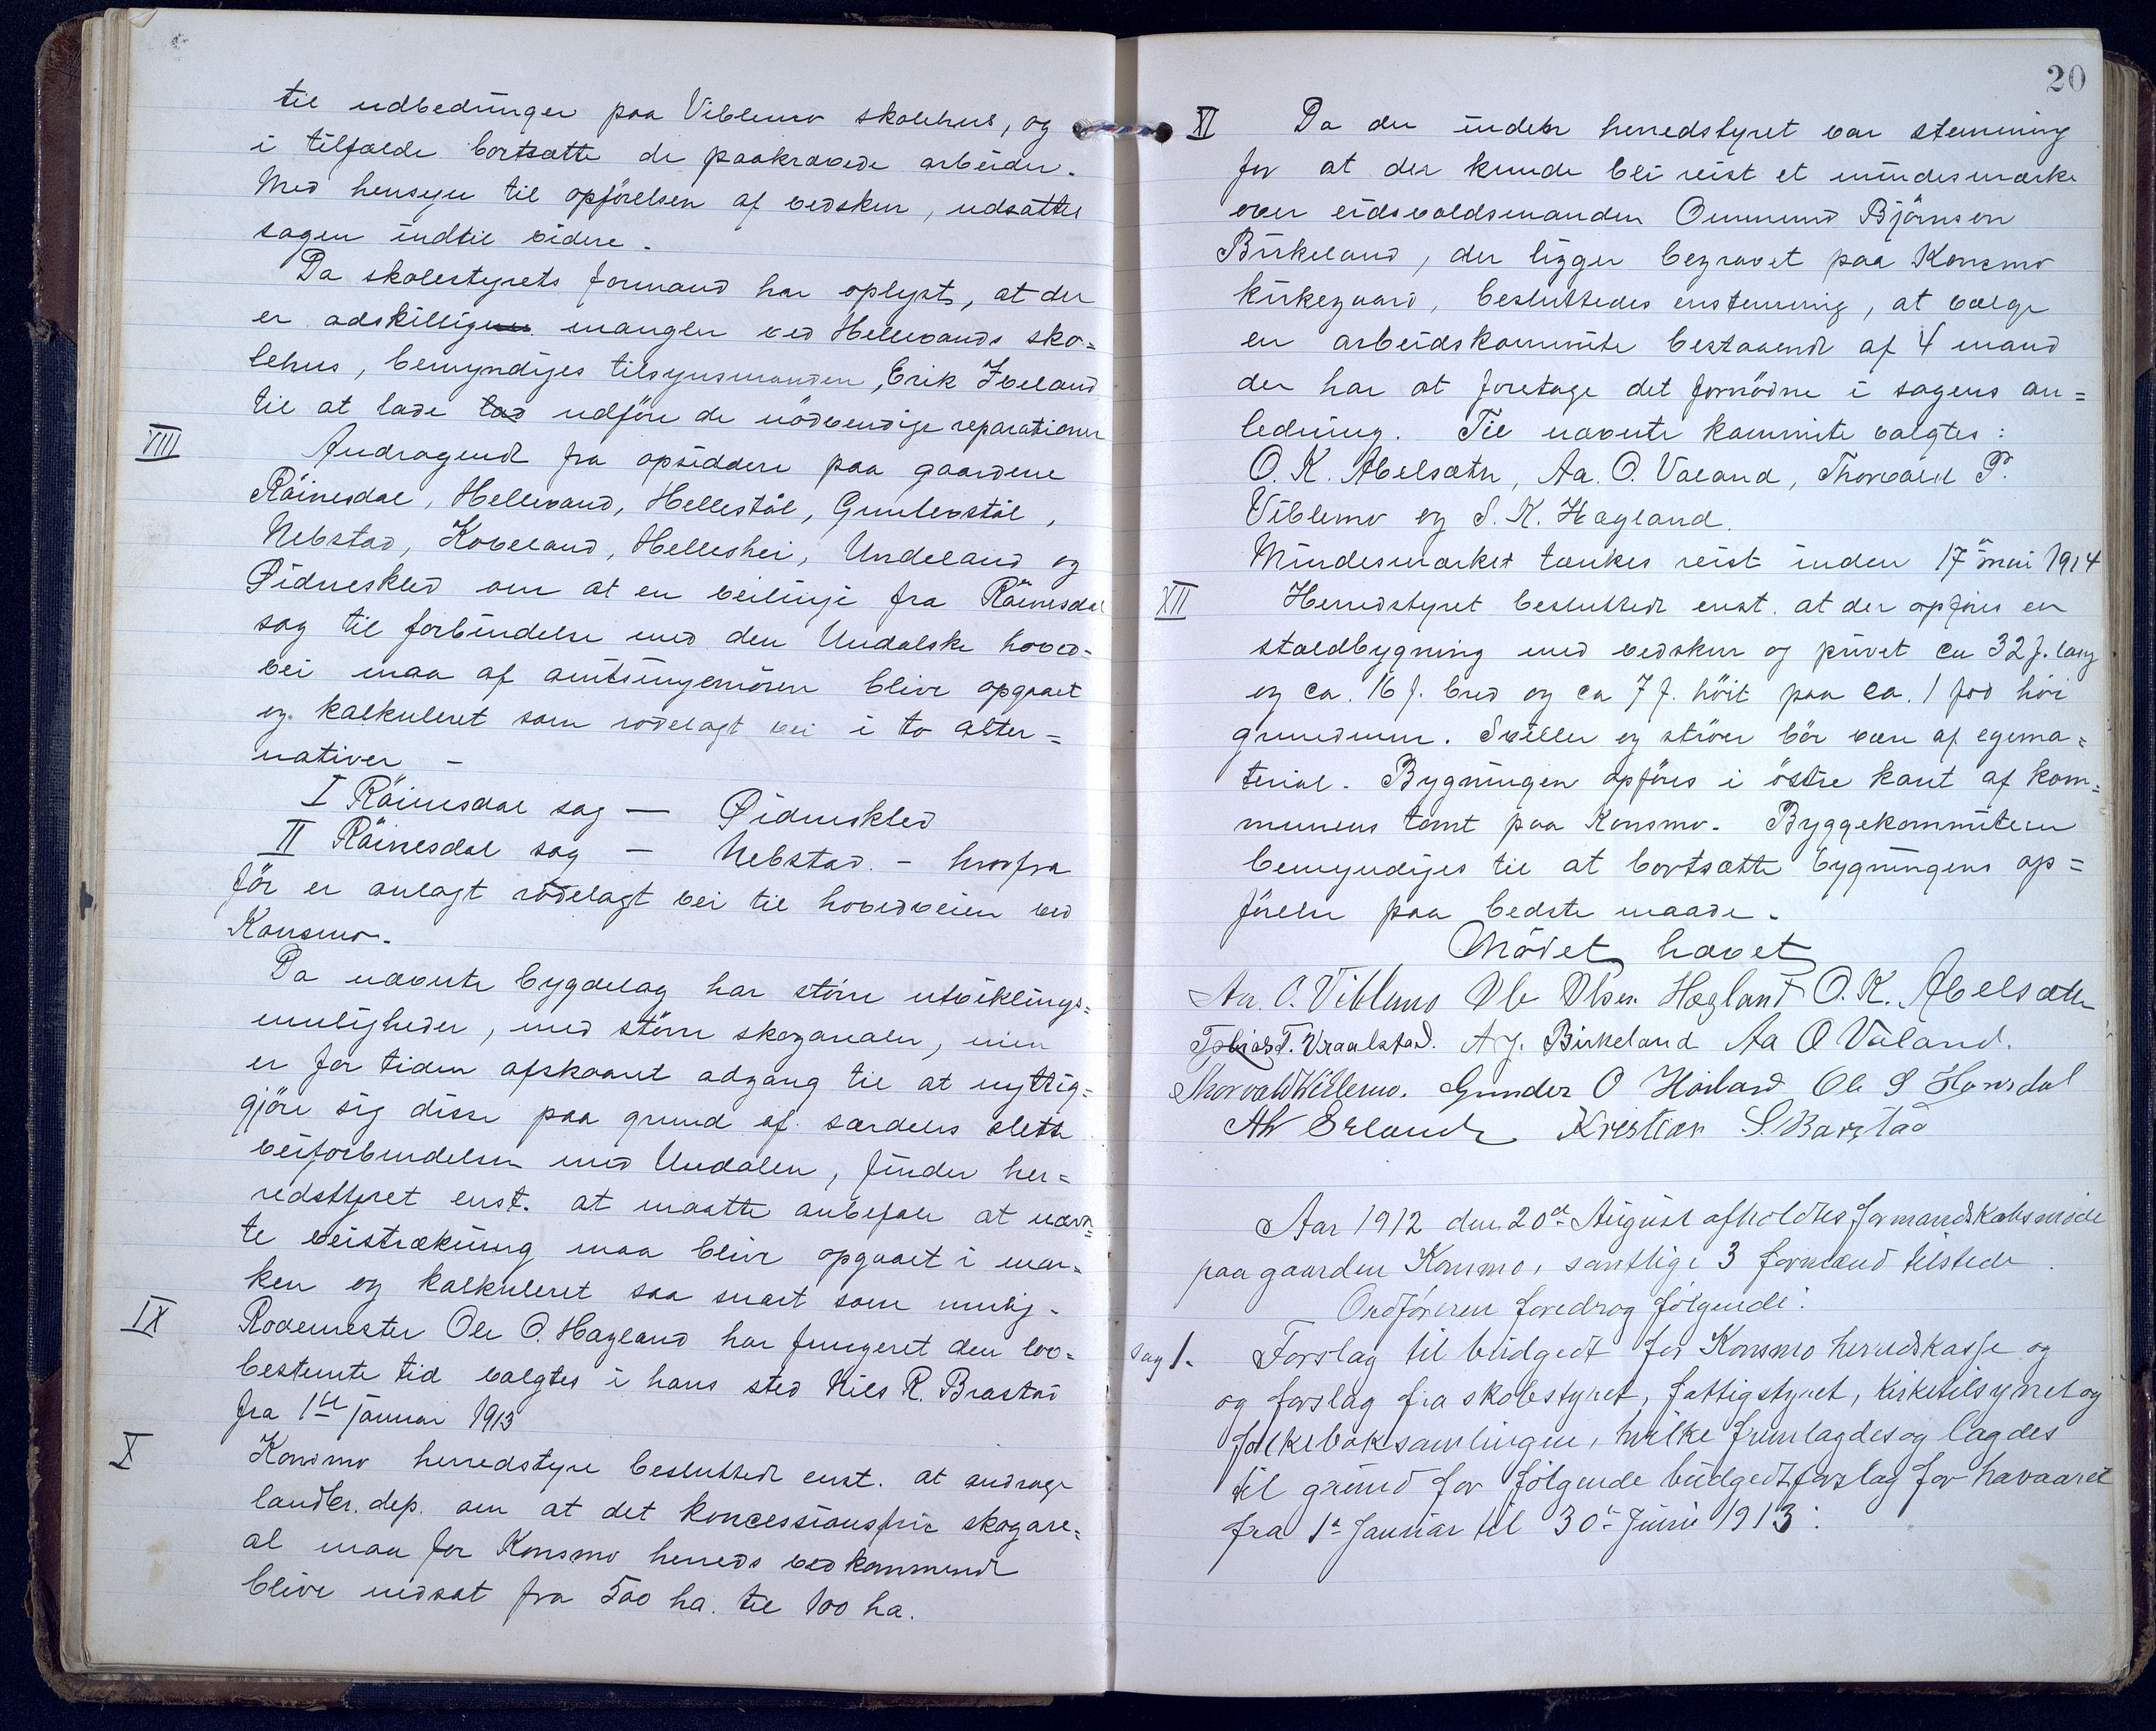 til udbedringer paa Viblemo skolehus, og
i tilfælde bortsætte de paakrævede arbeider.
Med hensyn til opförelsen af vedskur, udsættes
sagen indtil videre.
Da skolestyrets formand har oplyst, at der
er adskillig mangler ved Hellevands sko=
lehus, bemyndiges tilsynsmanden, Erik Iveland
til at lade udföre de nödvendige reparationer
VIII
Andragende fra opsiddere paa gaardene
Röinesdal, Hellevand, Hellestöl, Gunlevstöl,
Nebstad, Koveland, Helleshei, Undeland og
Øidneskled om at en veilinje fra Röinesdal
sag til forbindelse med den Undalske hoved=
vei maa af amtsingeniören blive opgaaet
og kalkuleret som rodelagt vei i to alter=
nativer -
I Röinesdal sag — Øidneskled
II Röinesdal sag — Nebstad. - hvorfra
för er anlagt rodelagt vei til hovedveien ved
Konsmo.
Da nævnte bygdelag har större utviklings=
muligheder, med större skogarealer, men
er for tiden afskaaret adgang til at nyttig=
gjöre sig disse paa grund af særdeles slette
veiforbindelser med Undalen, finder her=
redsstyret enst. at maatte anbefale at nævn=
te veistrækning maa blive opgaaet i mar=
ken og kalkuleret saa snart som mulig.
IX
Rodemester Ole O. Hagland har fungeret den lov=
bestemte tid valgtes i hans sted Nils R. Brastad
fra 1ste januar 1913
X
Konsmo herredstyre besluttede enst. at andrage
landbr. dep. om at det koncessionsfrie skogare=
al maa for Konsmo herreds vedkommende
blive nedsat fra 500 ha. til 100 ha.
20
XI
Da der inden herredstyret var stemning
for at der kunde bli reist et mindesmærke
over eidsvoldsmanden Ommund Björnson
Birkeland, der ligger begravet paa Konsmo
kirkegaard, besluttedes enstemmig, at vælge
en arbeidskommite bestaaende af 4 mand
der har at foretage det fornödne i sagens an=
ledning. Til nævnte kommite valgtes:
O. K. Abelsæter, Aa. O. Valand, Thorvald P.
Viblemo og S. K. Hagland.
Mindesmærket tænkes reist inden 17de mai 1914
XII
Herredstyret besluttede enst. at der opföres en
staldbygning med vedskur og privet ca 32 f. lang
og ca. 16 f. bred og ca 7 f. höit paa ca. 1 fod höi
grundmur. Sviller og stöer bör være af egema=
terial. Bygningen opföres i östre kant af kom=
munens tomt paa Konsmo. Byggekommiteen
bemyndiges til at bortsætte bygningens op=
förelse paa bedste maade.
Mödet hævet
Aa. O. Viblemo Ole Olsen Hagland O. K. Abelsæter
Tobias T. Vraalstad. A J. Birkeland Aa O Valand.
Thorvald Viblemo. Gunder O Höiland Ole S Homdal
Erland Kristian S. Barstad
Aar 1912 den 20de August afholdtes formandskabsmöde
paa gaarden Konsmo, samtlige 3 formænd tilstede.
Ordföreren foredrog fölgende:
Sag 1.
Forslag til budgedt for Konsmo herredskasse og
og forslag fra skolestyret, fattigstyret, kirketilsynet og
folkeboksamlingen, hvilke fremlagdes og lagdes
til grund for fölgende budgedtforslag for halvaaret
fra 1ste Januar til 30te Juni 1913: